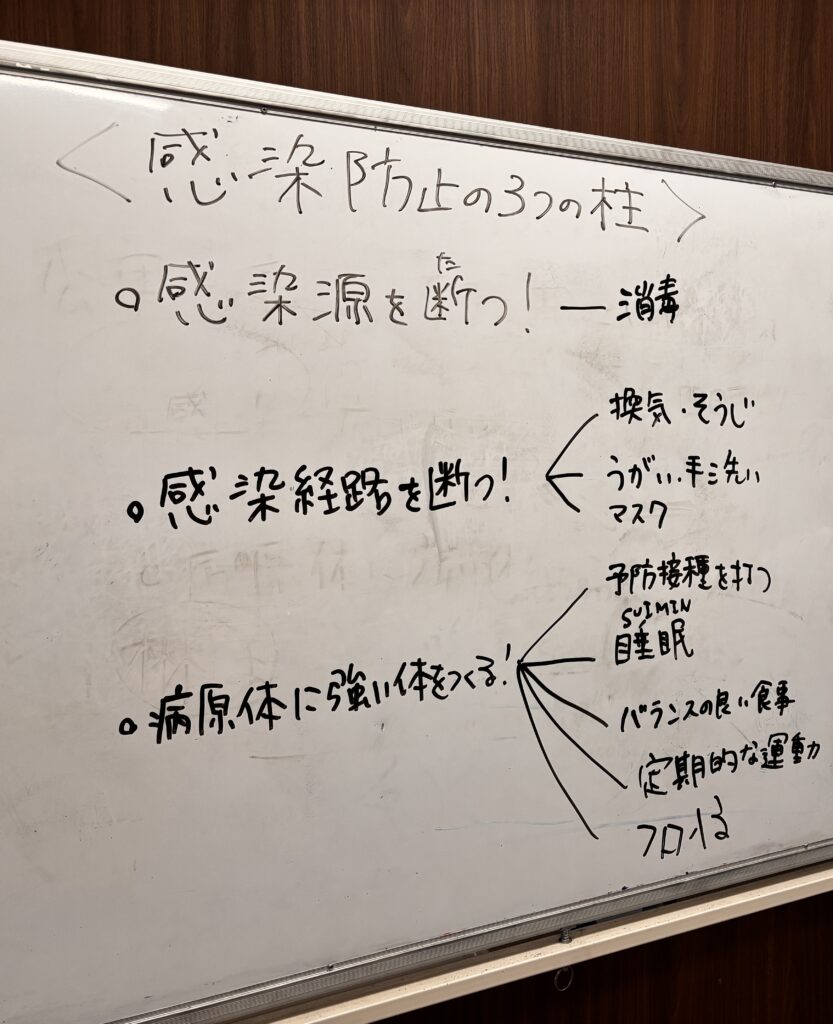 <感染防止の3つの柱>
た
○感染源を断つ! — 消毒
換気・そうじ
○感染経路を断つ!
うがい・手洗い
マスク
予防接種を打つ
SUIMIN
睡眠
○病原体に強い体をつくる!
バランスの良い食事
定期的な運動
フロ